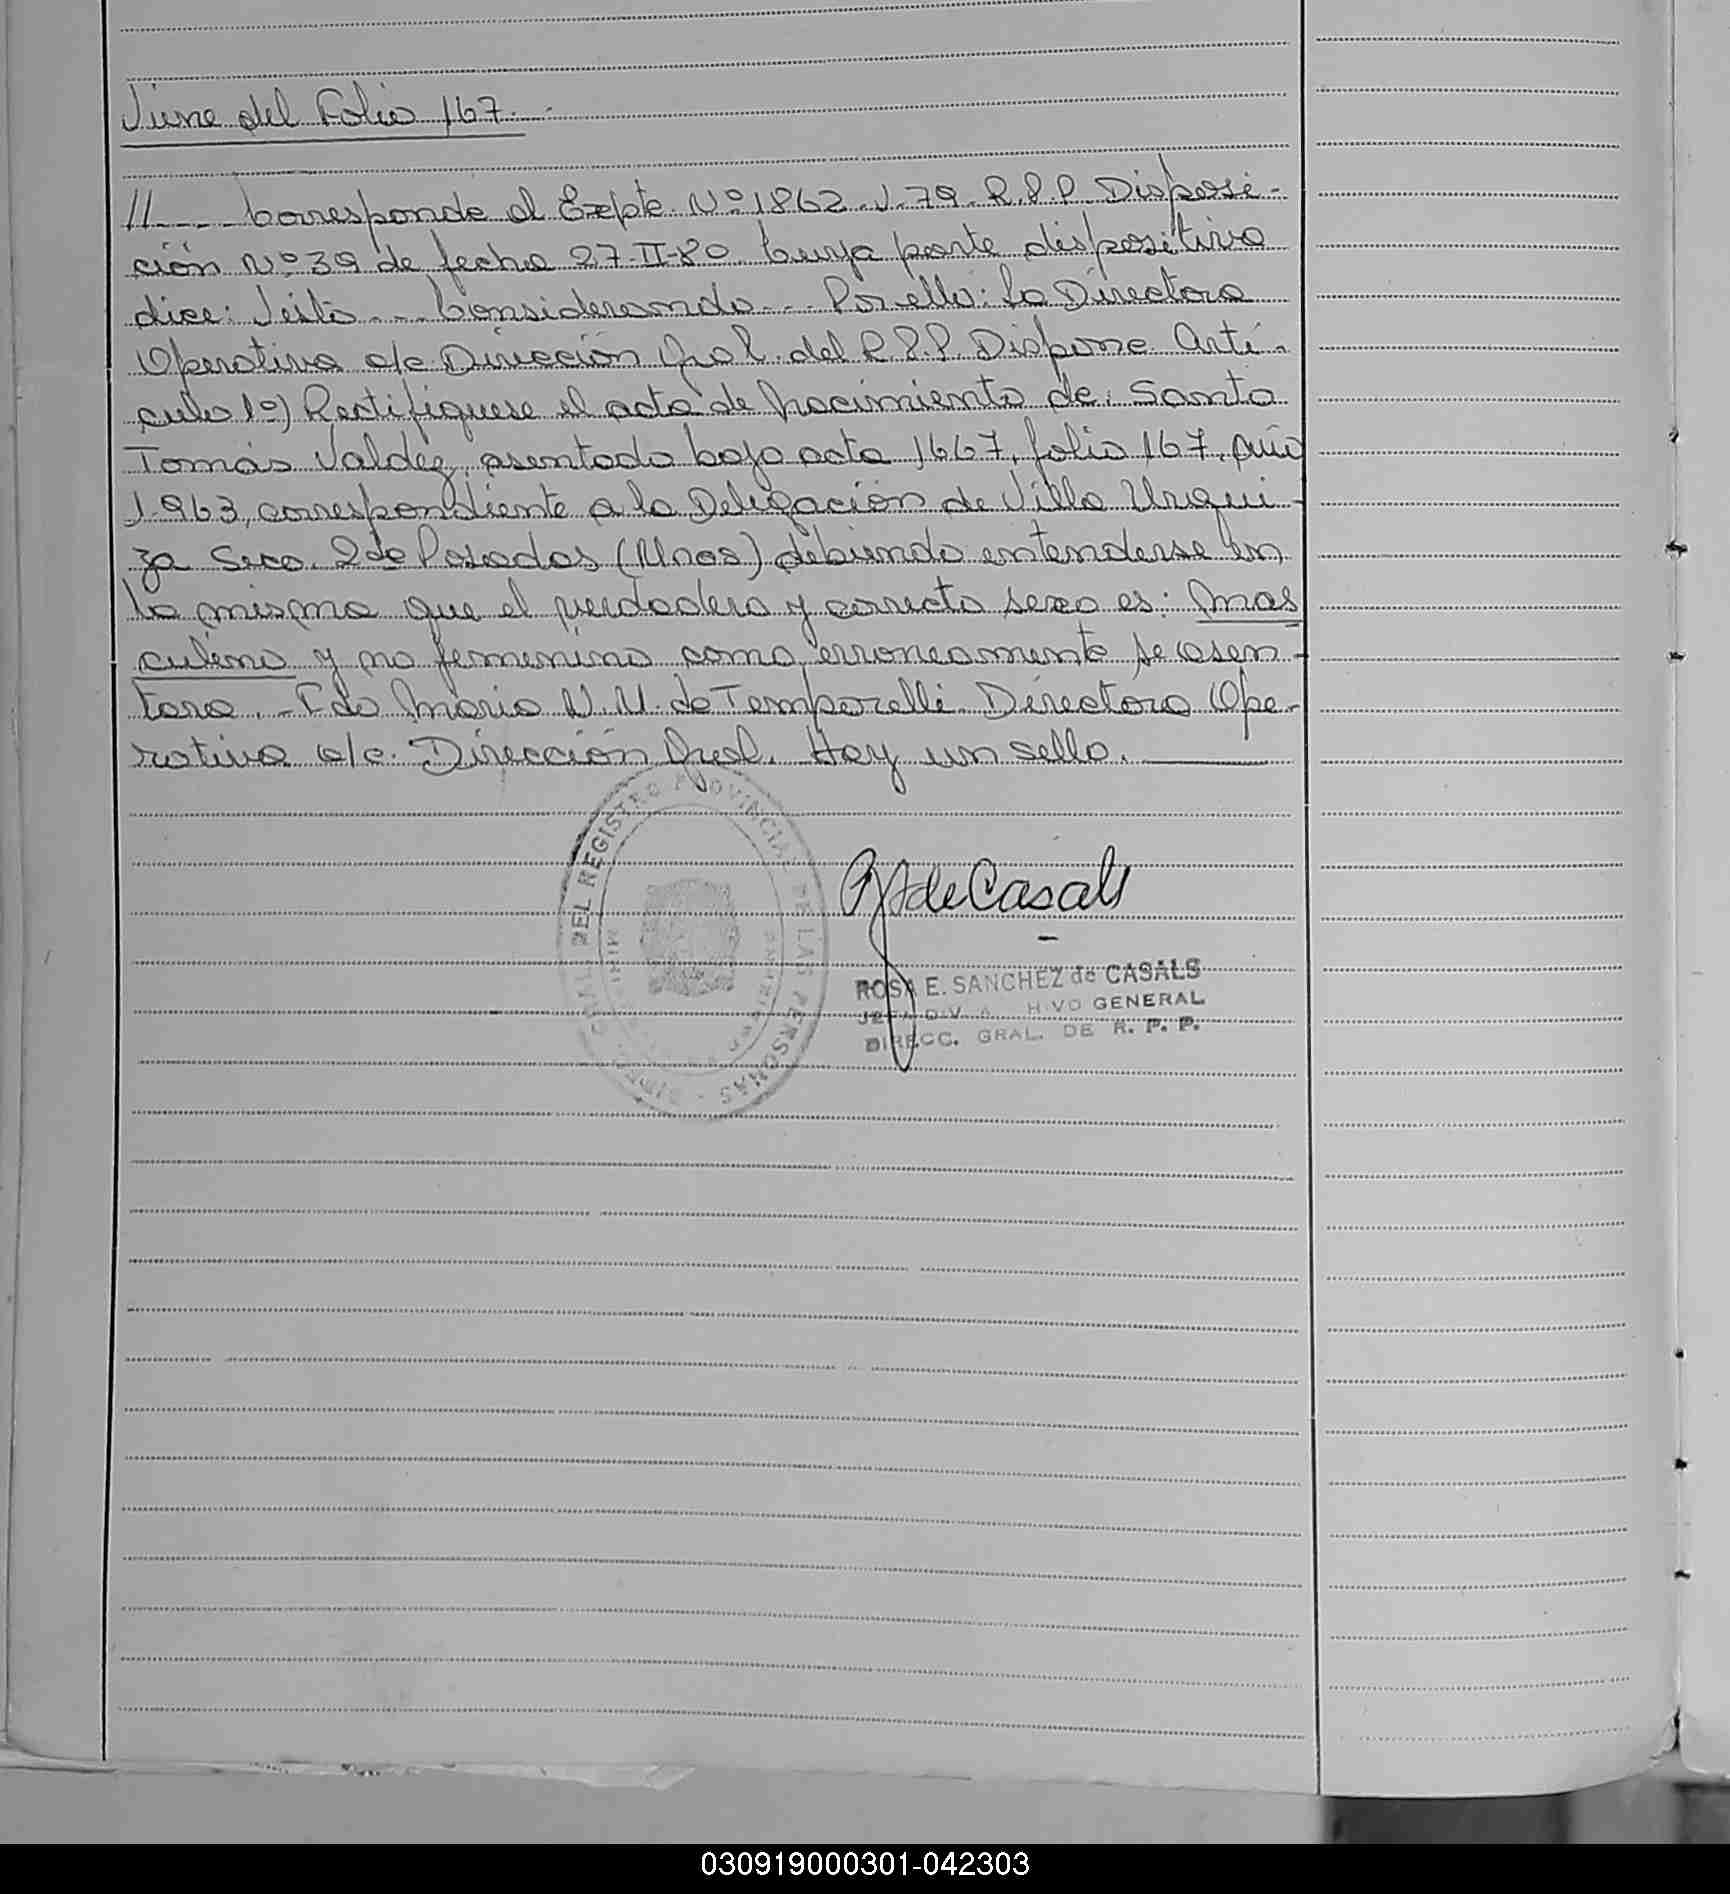 Viene del Folio 167.-
//--- Corresponde al Expte. Nº 1862-V-79-R.P.P. Disposi-
ción Nº 39 de fecha 27-II-80. Cuya parte dispositiva
dice: Visto --- Considerando --- Por ello: La Directora
Operativa a/c Dirección Gral. del R.P.P. Dispone Artí-
culo 1º) Rectifiquese el acta de Nacimiento de: Santo
Tomás Valdéz, asentado bajo acta 1667, folio 167, año
1.963, correspondiente a la Delegación de Villa Urqui-
za Secc. 2da Posadas (Mnes) debiendo entenderse en
la misma que el verdadero y correcto sexo es: Mas
culino y no femenino como erroneamente se asen-
tara.- Fdo María N. M. de Temporelli Directora Ope-
rativa a/c. Dirección Gral. Hay un sello.
DEL REGISTRO PROVINCIAL DE LAS PERSONAS
R S de Casals
ROSA E. SANCHEZ de CASALS
JEFA DIV. ARCHIVO GENERAL
DIRECC. GRAL. DE R. P. P.
030919000301-042303